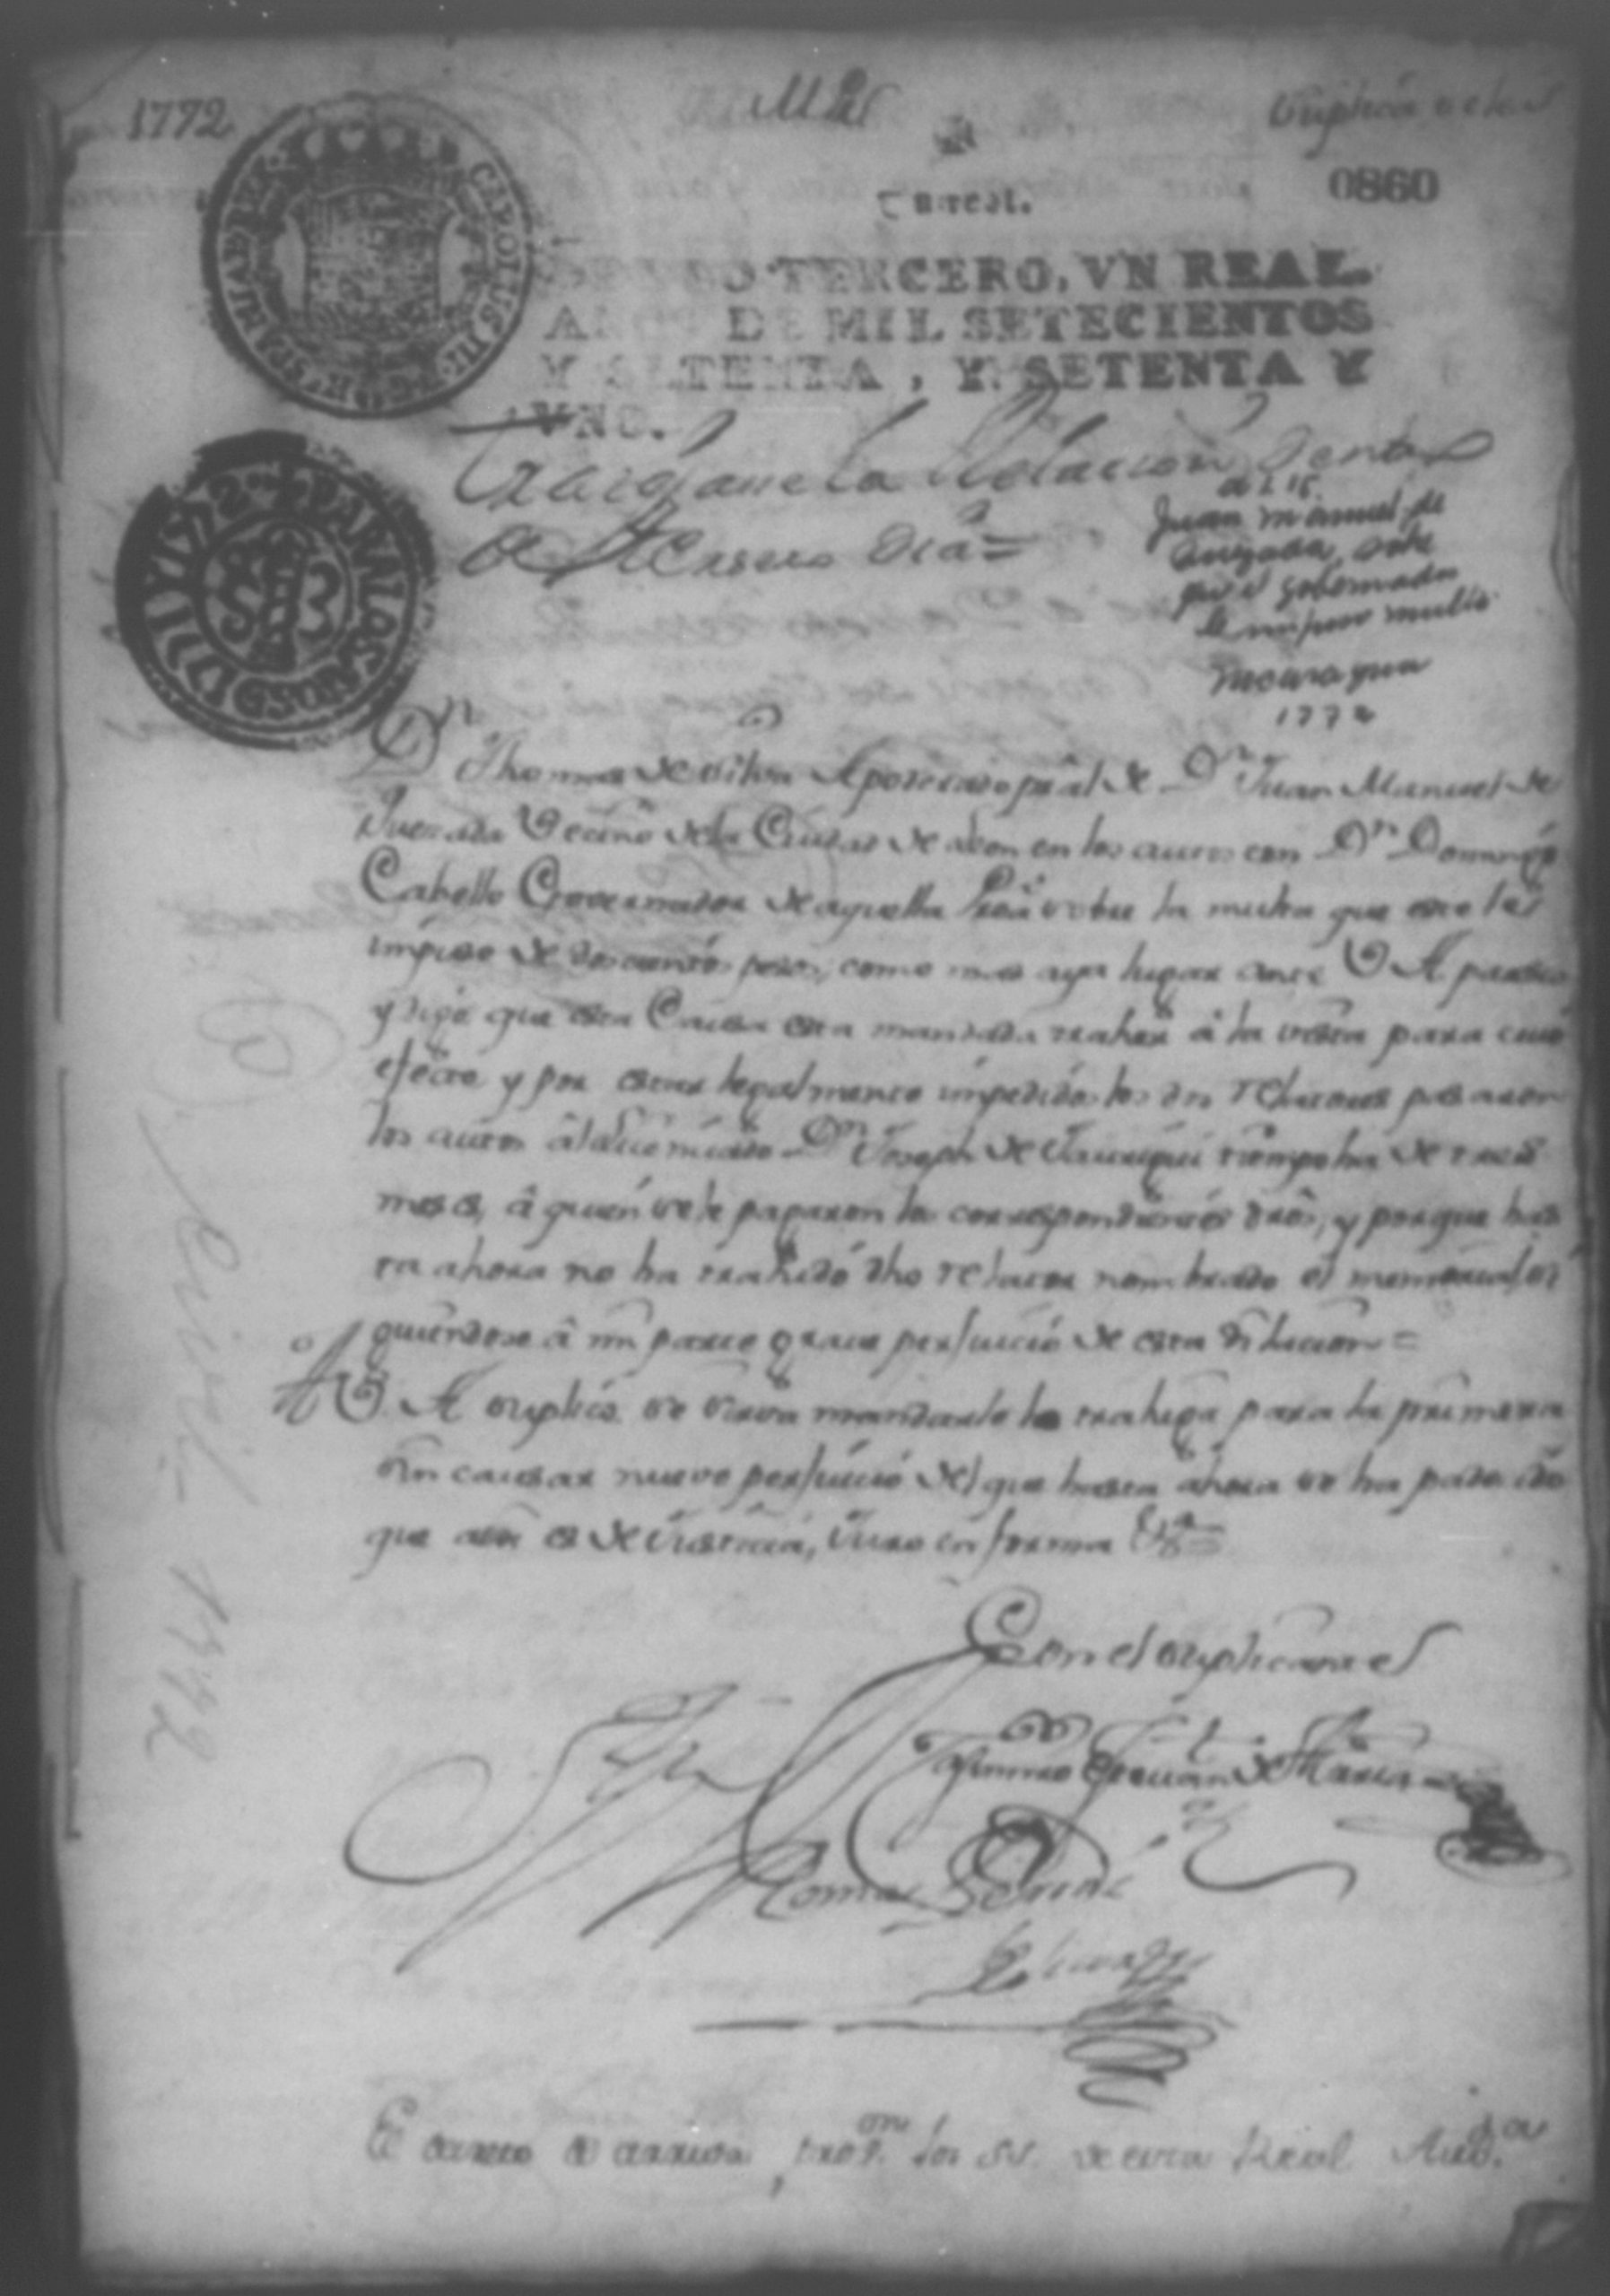 1772
M P S
Suplica
0860
Un real.
TERCERO, VN REAL.
DE MIL SETECIENTOS
Y SETENTA, Y SETENTA Y
VNO.
CAROLUS III
PARA LOS AÑOS D
1772 Y 73
Traigase la Relacion dentro
de tercero dia=
Juan Manuel de
Quezada, sobre
que el gobernador
le impuso multa
Nicaragua
1772
Dn Thomas de Apoderado de Dn Juan Manuel de
Quezada Vecino de la Ciudad de Leon en los autos con Dn Domingo
Cabello Governador de aquella Proa sobre la multa que este le
impuso de doscientos pesos, como mas aya lugar ante V. A. paresco
y digo que esta Causa esta mandada traher â la vista para cuio
efecto y por estar legalmente impedidos los dos relatores pasaron
los autos âl Licenciado Dn Joseph de tiempo ha de tres
meses, â quien se le pagaron los correspondientes dros, y porque has
ta ahora no ha trahido dho relator nombrado el memorial, si
guiendose â mi parte grave perjuicio de esta dilacion=
A V. A suplico se sirva mandarle lo trahiga para la primera
sin causar nuevo perjuicio del que hasta ahora se ha padecido
que asi es de Justicia, Juro en forma &a=
Tomas
El decreto de arriva, proveyeron los SS. de esta Real Auda
Civil 1772